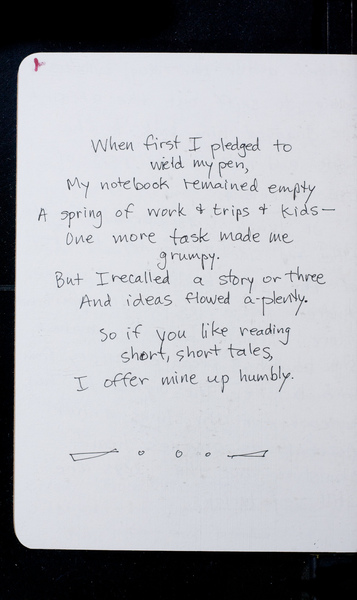 When first I pledged to
wield my pen,
My notebook remained empty
A spring of work & trips & kids—
One more task made me
grumpy.
But I recalled a story or three
And ideas flowed a-plenty.
So if you like reading
short, short tales,
I offer mine up humbly.